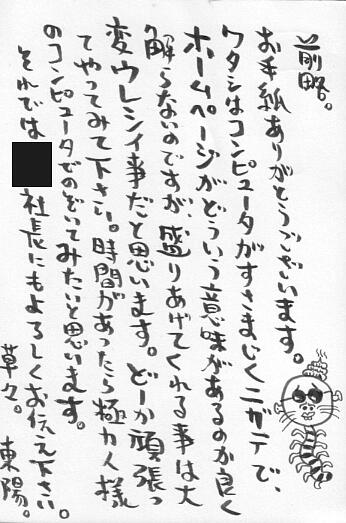 前略。
お手紙ありがとうございます。
ワタシはコンピュータがすさまじくニガテで、
ホームページがどういう意味があるのか良く
解らないのですが、盛りあげてくれる事は大
変ウレシイ事だと思います。どーか頑張っ
てやってみて下さい。時間があったら極カ人様
のコンピュータでのぞいてみたいと思います。
それでは
社長にもよろしくお伝え下さい。
草々。東陽。